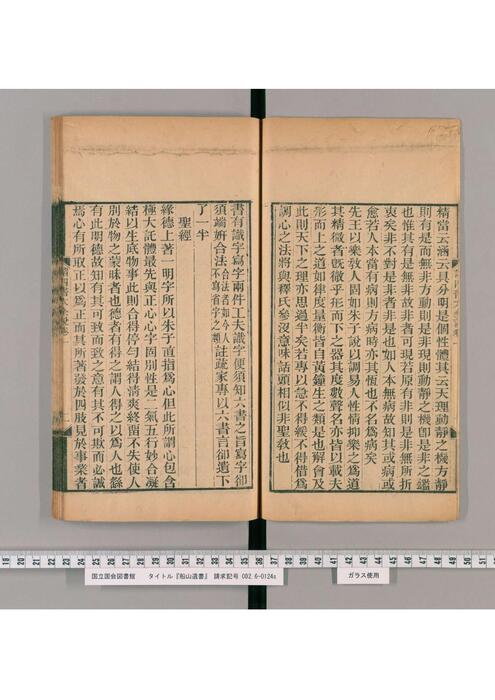 精當云涵云具分明是個性體其云天理動靜之機方靜
則有是而無非方動則是非現則動靜之機卽是非之鑑
也惟其有是無非故非者可現若原有非則是非無所折
衷矣非不對是非者非是也如人本無病故知其或病或
愈若人本當有病則方病時亦其恆也不名爲病矣
先王以樂敎人固如朱子說以調易人性情抑樂之爲道
其精微者旣徹乎形而下之器其度數聲名亦皆以載夫
形而上之道如律度量衡皆自黃鐘生之類是也解會及
此則天下之理亦思過半矣若專以急不得緩不得借爲
調心之法將與釋氏參沒意味話頭相似非聖敎也
書有識字寫字兩件工夫識字便須知六書之旨寫字卻
須端妍合法合法者如今人不寫省字之類註疏家專以六書言卻遺下
了一半
聖經
緣德上著一明字所以朱子直指爲心但此所謂心包含
極大託體最先與正心心字固別性是二氣五行妙合凝
結以生底物事此則合得停勻結得淸爽終留不失使人
別於物之蒙昧者也德者有得之謂人得之以爲人也繇
有此明德故知有其可致而致之意有其不可欺而必誠
焉心有所取正以爲正而其所著發於四肢見於事業者
国立国会図書館 タイトル『船山遺書』 請求記号 002.6-0124s
ガラス使用